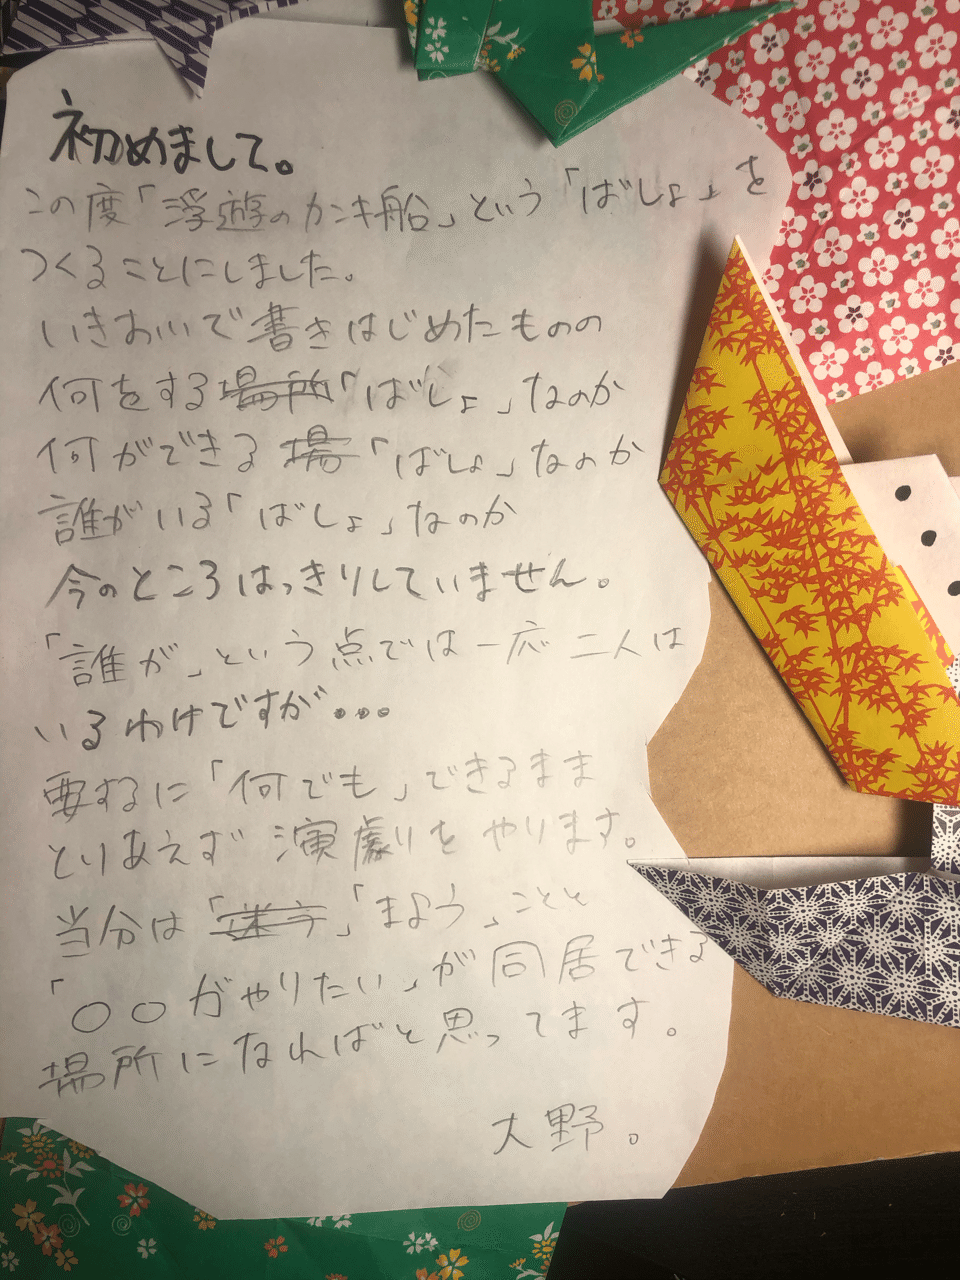 初めまして。
この度「浮遊のカンキ船」という「ばしょ」を
つくることにしました。
いきおいで書きはじめたものの
何をする場所「ばしょ」なのか
何ができる場「ばしょ」なのか
誰がいる「ばしょ」なのか
今のところはっきりしていません。
「誰が」という点では一応二人は
いるわけですが...
要するに「何でも」できるまま
とりあえず演劇りをやります。
当分は「迷う」「まよう」ことと
「〇〇がやりたい」が同居できる
場所になればと思ってます。
大野。